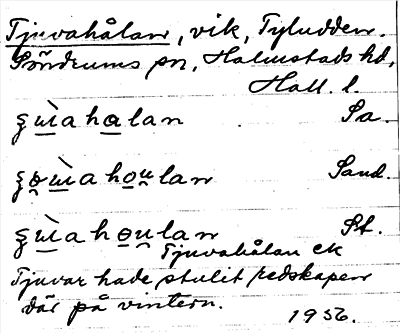 Tjuvahålan, vik, Tyludden.
Söndrums sn, Halmstads hd,
Hall. l.
ʂɯ̀ahalan Sa.
ʂo̯ɯ̀ahou̯lan Sand.
ʂɯ̀ahou̯lan St.
Tjuvahålan ck
Tjuvar hade stulit redskapen
där på vintern.
1956.